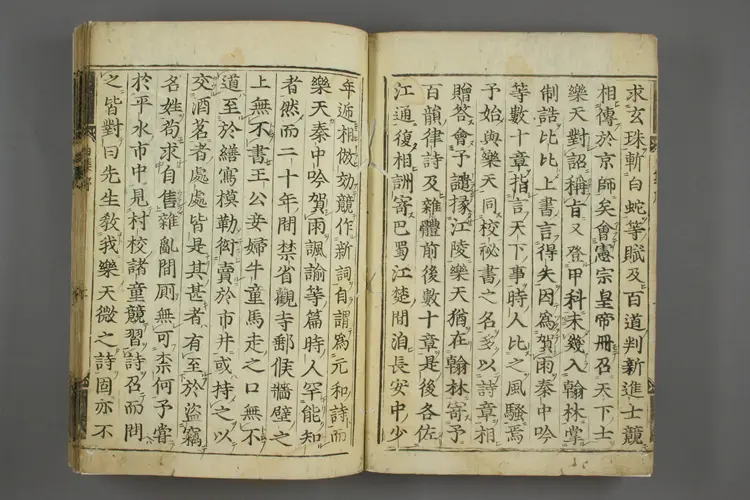 求玄珠斬白蛇等賦及百道判新進士競
相傳於京師矣會憲宗皇帝冊召天下士
樂天對詔稱旨又登甲科未幾入翰林掌
制誥比比上書言得失因爲賀雨秦中吟
等數十章指言天下事時人比之風騷焉
予始與樂天同校祕書之名多以詩章相
贈答會予譴掾江陵樂天猶在翰林寄予
百韻律詩及雜體前後數十章是後各佐
江通復相詶寄巴蜀江楚間洎長安中少
年遞相倣効競作新詞自謂爲元和詩而
樂天秦中吟賀雨諷諭等篇時人罕能知
者然而二十年間禁省觀寺郵候牆壁之
上無不書王公妾婦牛童馬走之口無不
道至於繕寫模勒衒賣於市井或持之以
交酒茗者處處皆是其甚者有至於盜竊
名姓苟求自售雜亂間厠無可柰何予嘗
於平水市中見村校諸童競習詩召而問
之皆對曰先生教我樂天微之詩固亦不